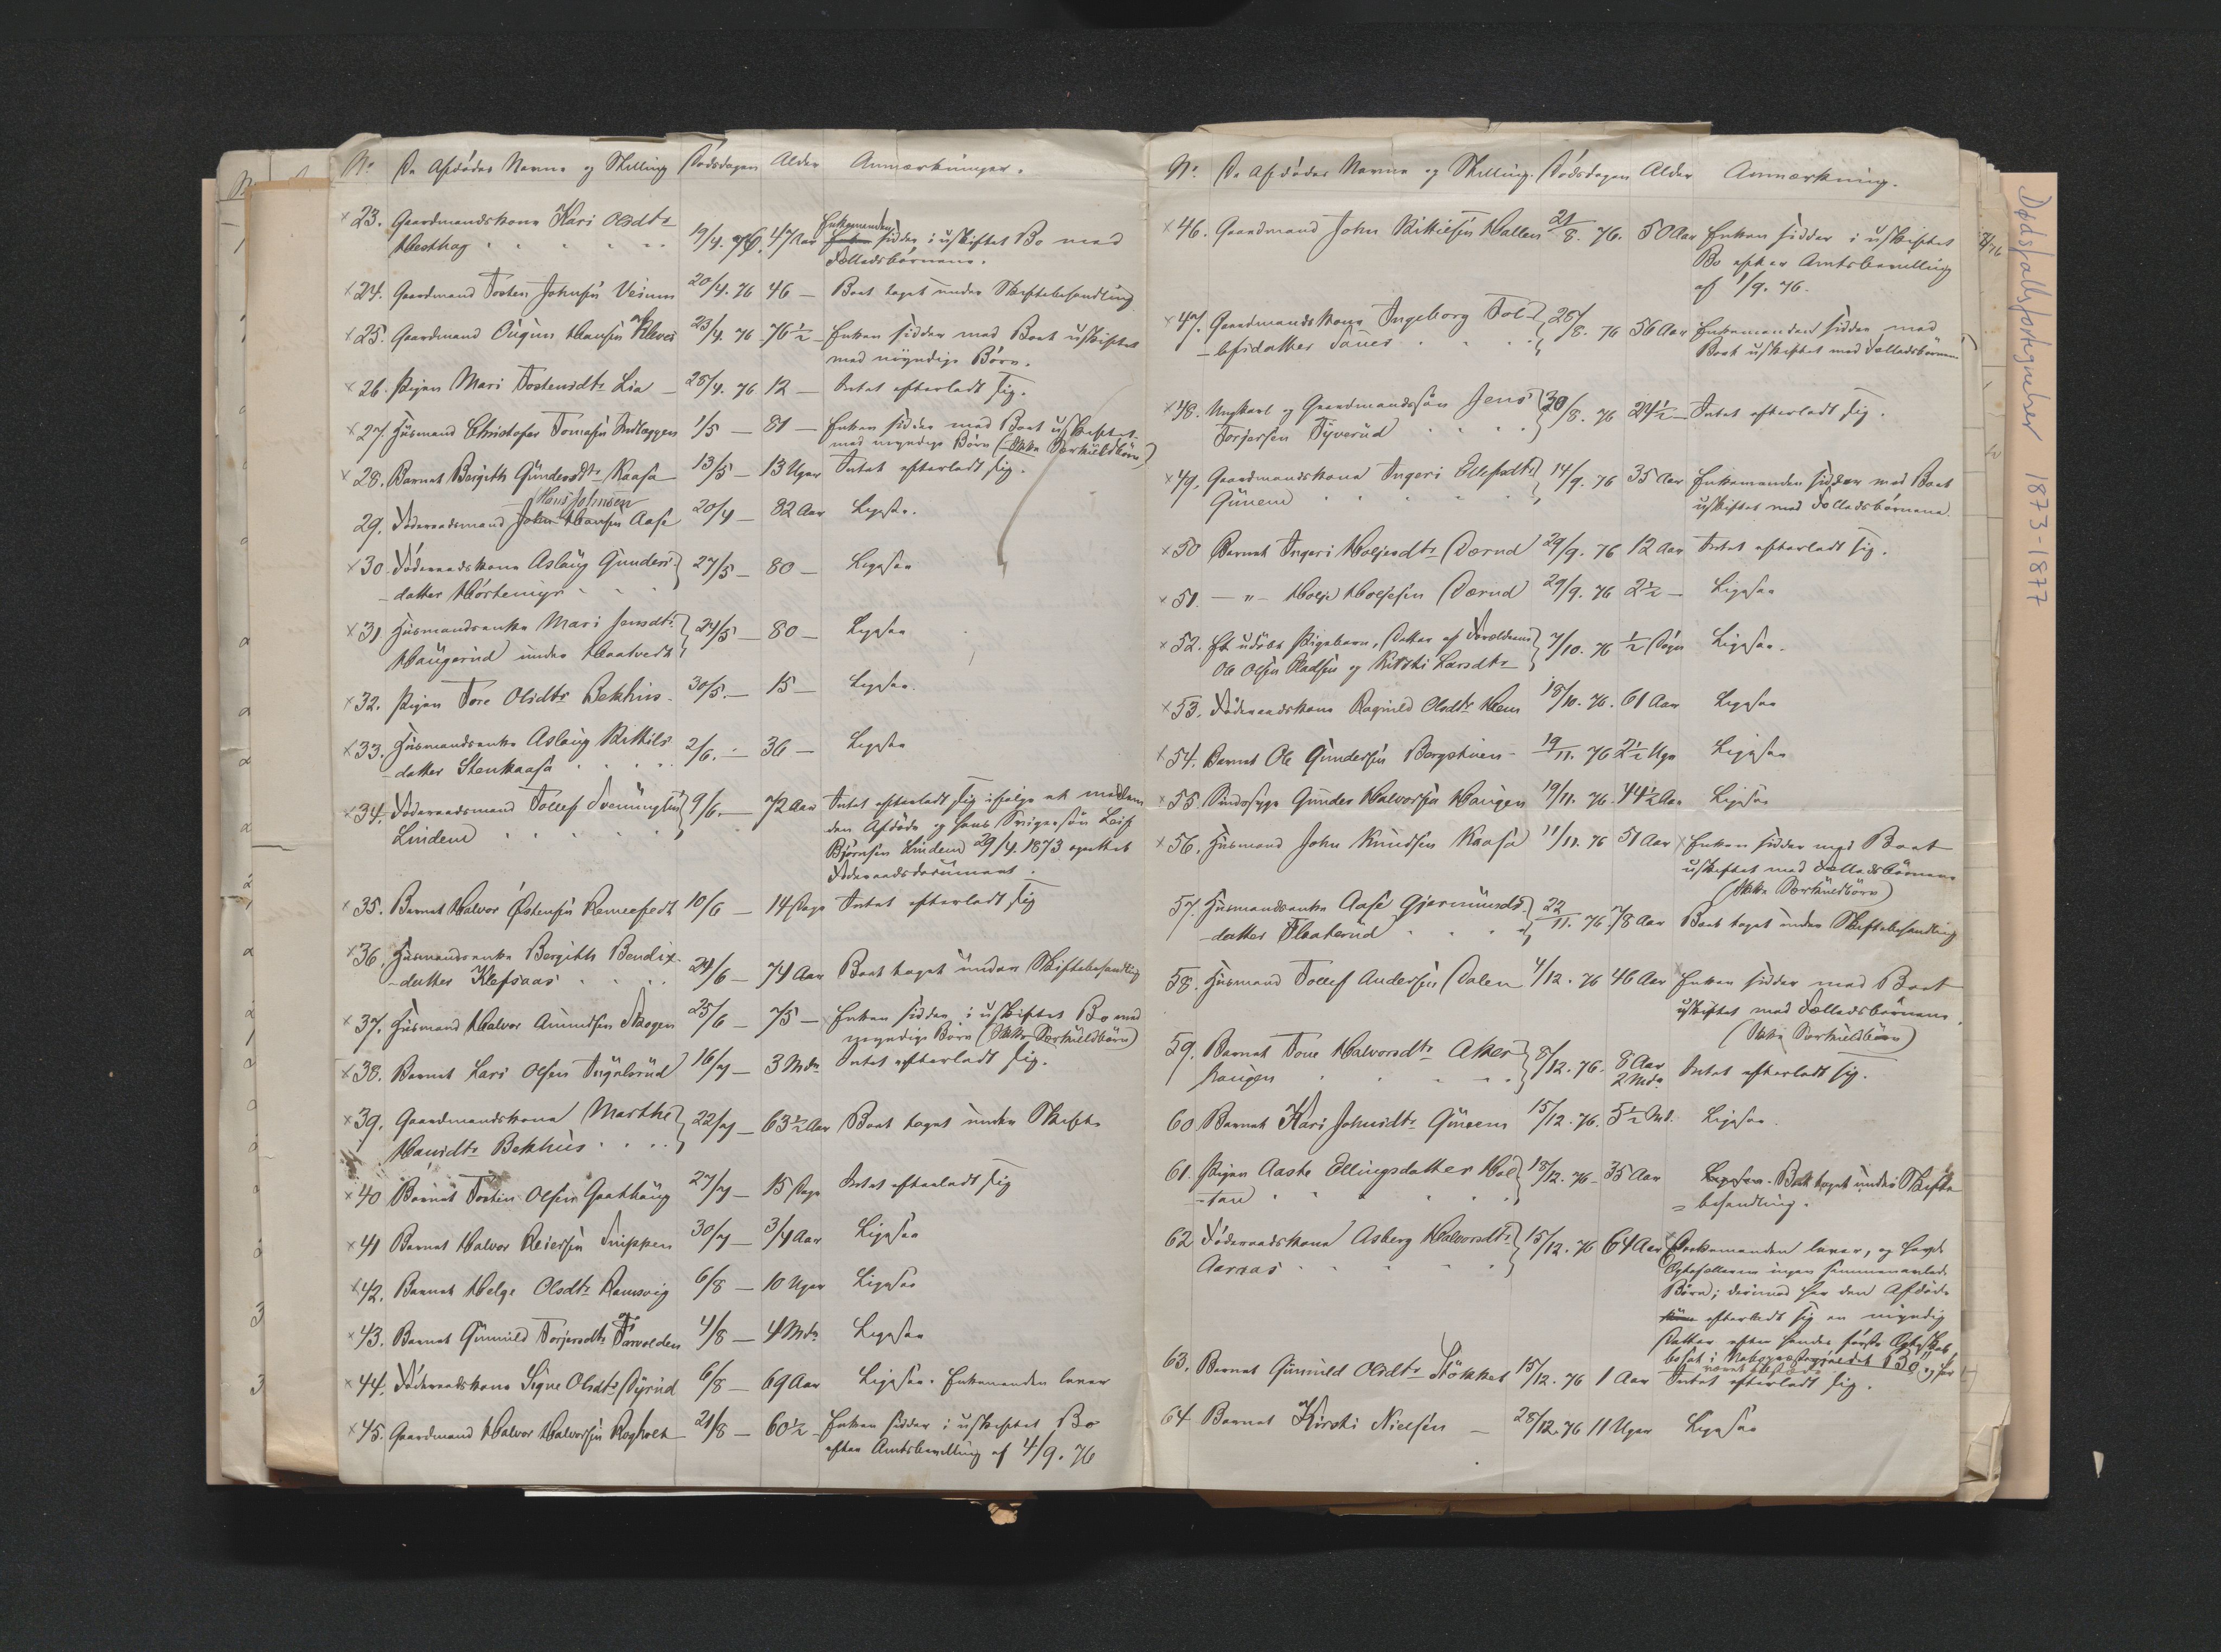 No. De Afdödes Navne og Stilling Dödsdagen Alder Anmærkninger.
23. Gaardmandskone Kari Olsdtr 19/4. 76. 47 Aar Enkemanden sidder i uskiftet Bo med
Hesthag Fælledsbörnene.
24. Gaardmand Tosten Johnsen Veium 20/4. 76 46 — Boet taget under Skiftebehandling
25. Gaardmand Ougun Hansen Kleves 23/4. 76 76½ — Enken sidder med Boet uskiftet
med myndige Börn.
26. Pigen Mari Tostensdtr Lia — 28/4. 76 12 — Intet efterladt sig.
27. Husmand Christofer Tomesen 1/5 — 81 — Enken sidder med Boet uskiftet
med myndige Börn (Ikke Særkuldbörn)
28. Barnet Bergith Gundersdtr Kaasa 13/5 — 13 Uger Intet efterladt sig.
Hans Johnsen
29. Föderaadsmand John Hansen Aase 20/4 — 82 Aar Ligesaa.
30. Föderaadskone Aslaug Gunders- 27/5 — 80 — Ligesaa
-datter Hörtemyr
31 Husmandsenke Mari Jensdtr 24/5 — 80 — Ligesaa
Haugerud under Haatvedt
32. Pigen Tore Olsdtr Bekhus 30/5. — 15 — Ligesaa.
33. Husmandsenke Aslaug Kittils- 2/6. — 36 — Ligesaa
-datter Stenkaasa
34. Föderaadsmand Tollef Svenungsen 9/6. — 72 Aar Intet efterladt sig ifölge et mellem
Lindem den Afdöde og hans Svigersön Leif
Björnsen Lindem 29/4. 1873 oprettet
Föderaadsdocument.
35. Barnet Halvor Østensen 10/6 — 14 Dage Intet efterladt sig
36. Husmandsenke Bergith Bendix- 24/6 — 74 Aar Boet taget under Skiftebehandling
-datter Klefsaas
37. Husmand Halvor Amundsen Skogen 25/6 — 75 — Enken sidder i uskiftet Bo med
myndige Börn (Ikke Særkuldbörn)
38. Barnet Lars Olsen 16/7 — 3 Mdr Intet efterladt sig.
39. Gaardmandskone Marthe 22/7 — 63½ Aar Boet taget under Skifte
Hansdtr Bekhus
40 Barnet Tosten Olsen Graathaug 27/7 — 15 Dage Intet efterladt sig
41 Barnet Halvor Reiersen Snippen 30/7 — 3/4 Aar Ligesaa
42. Barnet Helge Olsdtr Ramsvig 6/8 — 10 Uger Ligesaa
43. Barnet Gunnild Torjersdtr Torvolden 4/8 — 4 Mdr Ligesaa
44. Föderaadskone Signe Olsdtr Dyrud 6/8 — 69 Aar Ligesaa. Enkemanden lever
45. Gaardmand Halvor Halvorsen Rogholt 21/8 — 60½ — Enken sidder i uskiftet Bo
efter Amtsbevilling af 4/9. 76
No. De Afdödes Navne og Stilling. Dödsdagen Alder Anmærkning.
46. Gaardmand John Kittilsen Hallen 21/8. 76. 50 Aar Enken sidder i uskiftet
Bo efter Amtsbevilling
af 1/9. 76.
47. Gaardmandskone Ingeborg Tol- 26/8. 76 56 Aar Enkemanden sidder med
-lefsdatter Boet uskiftet med Fælledsbörnene
48. Ungkarl og Gaardmandssön Jens 30/8. 76 24½ — Intet efterladt sig.
Torjersen Tyverud
49. Gaardmandskone Ingeri Ellefsdtr 14/9. 76 35 Aar Enkemanden sidder med Boet
Gunem uskiftet med Fælledsbörnene.
50 Barnet Ingeri Holjesdtr Dærud 29/9. 76 12 Aar Intet efterladt sig.
51. — " — Holje Holjesen Dærud 29/9. 76 2½ — Ligesaa
52. Et udöbt Pigebarn, Datter af Forældrene 7/10. 76 ½ Dögn Ligesaa.
Ole Olsen og Kirsti Larsdtr
53. Föderaadskone Ragnild Olsdtr Hem 18/10. 76. 61 Aar Ligesaa
54. Barnet Ole Gundersen Bergstuen — 19/11. 76 2½ Uge Ligesaa
55. Sindssyge Gunder Halvorsen Haugen 19/11. 76. 44½ Aar Ligesaa
56. Husmand John Knudsen Kaasa 11/11. 76 51 Aar Enken sidder med Boet
uskiftet med Fælledsbörnene
(Ikke Særkuldbörn)
57. Husmandsenke Aase Gjermunds- 22/11. 76. 78 Aar Boet taget under Skiftebehandling
-datter Flaterud
58. Husmand Tollef Andersen Dalen 4/12. 76 46 Aar Enken sidder med Boet
uskiftet med Fælledsbörnene.
(Ikke Særkuldbörn)
59. Barnet Tone Halvorsdtr Aker- 8/12. 76. 8 Aar Intet efterladt sig.
haugen 2 Mdr
60. Barnet Kari Johnsdtr Gunem 15/12. 76. 5½ Md. Ligesaa.
61. Pigen Aaste Ellingsdatter Hol- 18/12. 76 — 35 Aar Ligesaa. Boet taget under Skifte-
-tan behandling.
62 Föderaadskone Asberg Halvorsdtr 15/12. 76 64 Aar Enkemanden lever, og havde
Aarnas Ægtefællerne ingen sammenavlede
Börn; derimod har den Afdöde
efterladt sig en myndig
Datter efter hendes förste Ægteskab,
bosat i Nabopræstegjældet Bö, og har
63. Barnet Gunnild Olsdtr Stökket 15/12. 76 1 Aar Intet efterladt sig.
64 Barnet Kirsti Nielsen — 28/12. 76 11 Uger Ligesaa
Dødsfallsfortegnelser 1873-1877